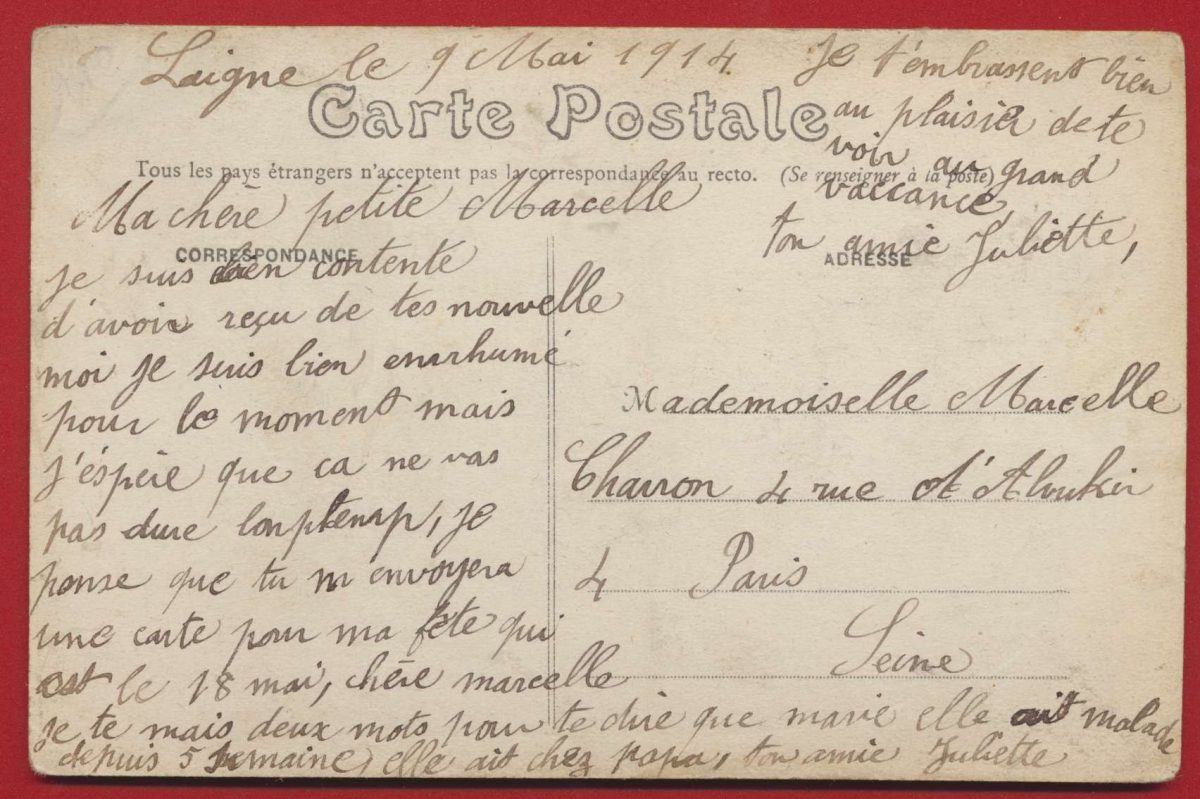 Laigne le 9 Mai 1914.
Carte Postale
Tous les pays étrangers n'acceptent pas la correspondance au recto. (Se renseigner à la poste)
Ma chère petite Marcelle
CORRESPONDANCE
je suis bien contente
d'avoir reçu de tes nouvelle
moi je suis bien enrhumé
pour le moment mais
j'éspère que ca ne vas
pas dure lonptemp, je
ponse que tu m envoyera
une carte pour ma fête qui
est le 18 mai, chère marcelle
je te mais deux mots pour te dire que marie elle ait malade
depuis 5 semaine, elle ait chez papa, ton amie Juliette
Je t'embrassent bien
au plaisir de te
voir au grand
vaccance,
ton amie Juliette,
ADRESSE
Mademoiselle Marcelle
Charron 4 rue d'Aboukir
4 Paris
Seine